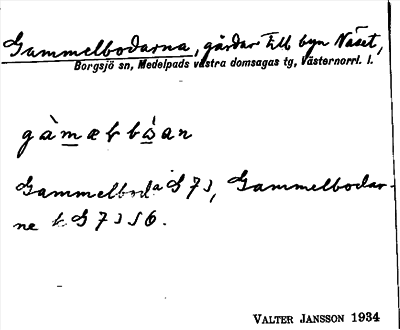 Gammelbodarna, gårdar till byn Näset,
Borgsjö sn, Medelpads västra domsagas tg, Västernorrl. l.
gàmæbbòan
Gammelboda G 73, Gammelbodar-
ne G 73 S 6.
VALTER JANSSON 1934